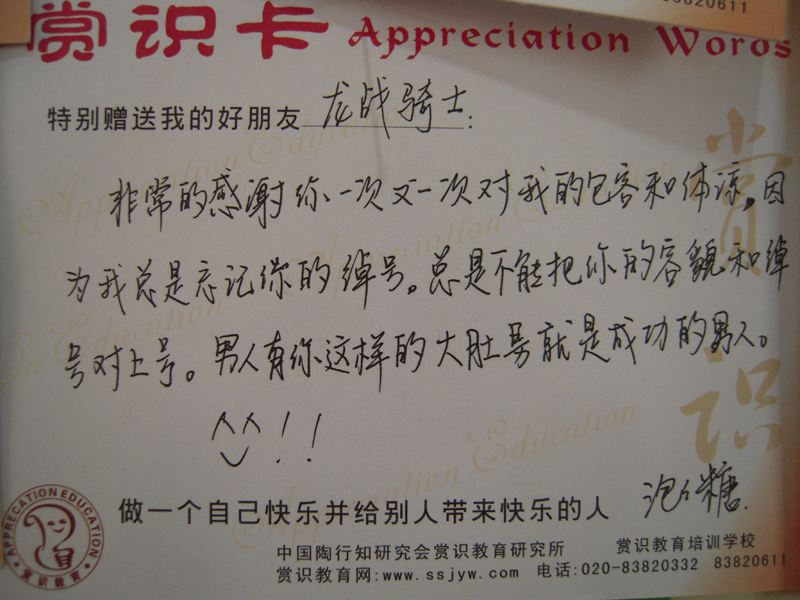 83820611
赏识卡 Appreciation Words
特别赠送我的好朋友 龙战骑士:
非常的感谢你一次又一次对我的包容和体谅。因
为我总是忘记你的绰号。总是不能把你的容貌和绰
号对上号。男人有你这样的大肚男就是成功的男人。
^^!!
做一个自己快乐并给别人带来快乐的人 泡泡糖.
中国陶行知研究会赏识教育研究所 赏识教育培训学校
赏识教育网:www.ssjyw.com 电话:020-83820332 83820611
APPRECATION EDUCATION
赏识教育
赏识
Appreciation Education